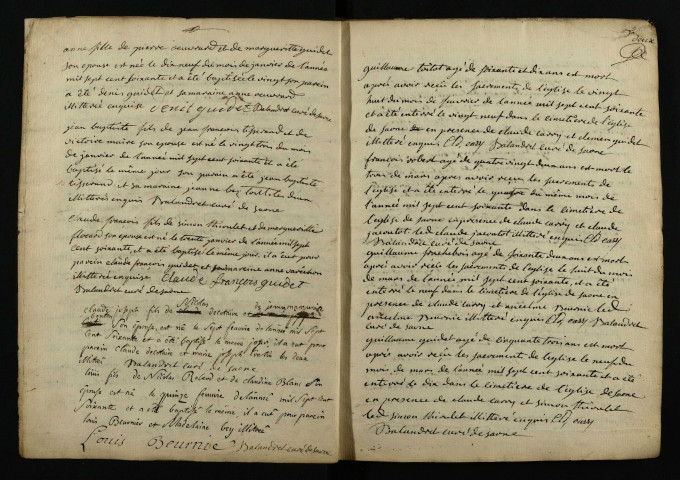 anne fille de pierre et de marguerite guidet
son epouse est née le dix neuf du mois de janvier de l'année
mil sept cent soixante et a été baptisée le vingt son parein
a été denis guidet et sa mareine anne
illitterée enquise denis guidet Balandret curé de saone
jean baptiste fils de jean francois tisserand et de
victoire maire son epouse est né le vingt trois du mois
de janvier de l'année mil sept cent soixante et a été
baptisé le même jour son parein a été jean baptiste
tisserand et sa mareine jeanne
illitterés enquis Balandret curé de saone
claude francois fils de simon thioulet et de marguerite
son epouse est né le trente janvier de l'année mil sept
cent soixante, et a été baptisé le même jour, il a eut pour
parein claude francois guidet et pour mareine anne
illitterée enquise Claude francois guidet
Balandret curé de saone
Claude joseph fils de Nicolas et de
Son épouse, est né le sept fevrier de l'année mil sept
cent soixante et a été baptisé le meme jour, il a eut pour
parein Claude et marie joseph les deux
illitterés Balandret curé de saone
louis fils de Nicolas Roland et de claudine Blanc son
epouse est né le quinze fevrier de l'année mil sept cent
soixante et a été baptisé le meme il a eut pour parein
louis Beurnier et Madelaine bey illitterée
Louis Beurnier Balandret curé de saone
guillaume agé de soixante et dix ans est mort
après avoir reçu les sacrements de l'église le vingt
huit du mois de fevrier de l'année mil sept cent soixante
et a été enterré le vingt neuf dans le cimetiere de l'église
de saone en presence de claude carry et clement guidet
illitteré enquis Cld carry Balandret curé de saone
francois agé de quatre vingt deux ans est mort le
trois de mars après avoir reçu les sacrements de
l'église et a été enterré le quatre du même mois de
l'année mil sept cent soixante dans le cimetiere de
l'église de saone en presence de claude carry et claude
jacoutot led claude jacoutot illitteré enquis Cld carry
Balandret curé de saone
guillaume agé de soixante deux ans est mort
après avoir reçu les sacrements de l'église le huit du mois
de mars de l'année mil sept cent soixante, et a été
enterré le neuf dans le cimetiere de l'église de saone en
presence de claude carry et anselme Beurnier led
anselme Beurnier illitteré enquis Cld carry Balandret
curé de saone
guillaume guidet agé de cinquante trois ans est mort
après avoir reçu les sacrements de l'église le neuf du
mois de mars de l'année mil sept cent soixante et a été
enterré le dix dans le cimetiere de l'église de saone
en presence de claude carry et simon thioulet
led simon thioulet illitteré enquis Cld carry
Balandret curé de saone